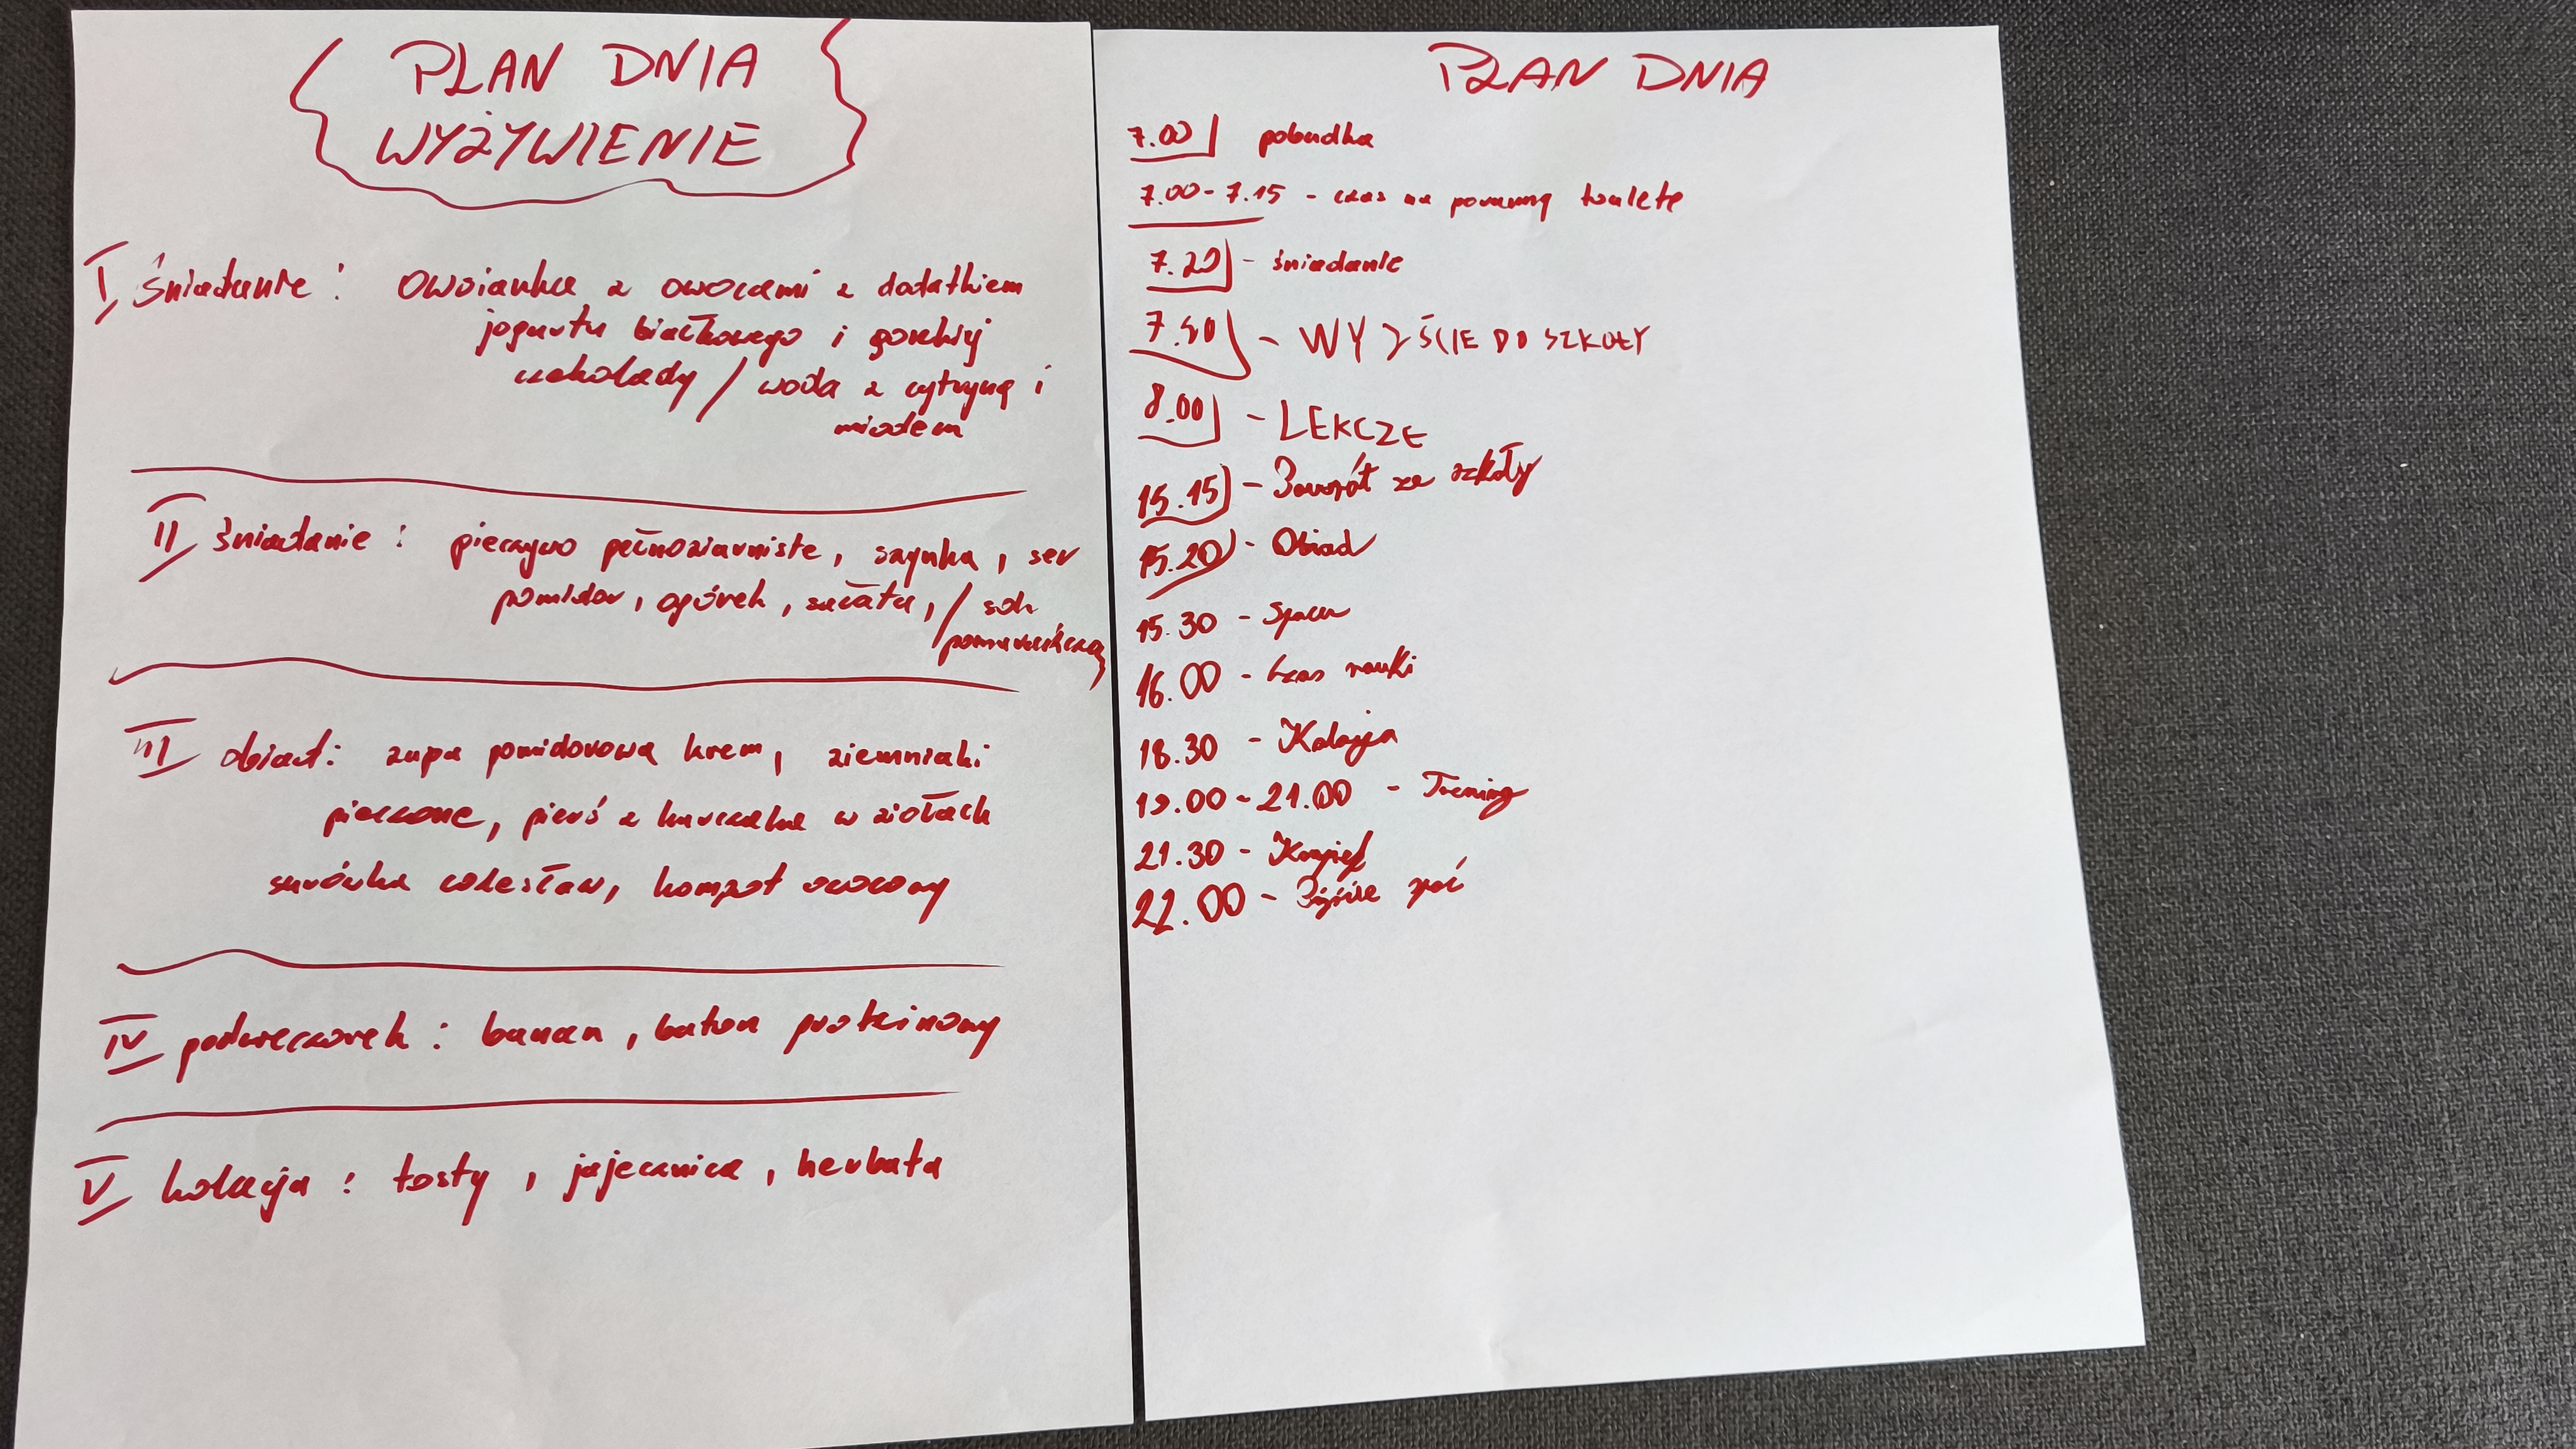 PLAN DNIA
WYŻYWIENIE
I śniadanie: Owsianka z owocami z dodatkiem
jogurtu białkowego i gorzkiej
czekolady / woda z cytryną i
miodem
II śniadanie: pieczywo pełnoziarniste, szynka, ser
pomidor, ogórek, sałata, / sok
III obiad: zupa pomidorowa krem, ziemniaki
pieczone, pierś z kurczaka w ziołach
surówka colesław, kompot owocowy
IV podwieczorek: banan, baton proteinowy
V kolacja: tosty, jajecznica, herbata
PLAN DNIA
7.00 pobudka
7.00-7.15 - czas na poranną toaletę
7.20 - śniadanie
- WYJŚCIE DO SZKOŁY
8.00 - LEKCJE
15.15 - Powrót ze szkoły
15.20 - Obiad
15.30 - Spacer
16.00 - Czas nauki
18.30 - Kolacja
19.00-21.00 - Trening
21.30 - Kąpiel
22.00 - Pójście spać